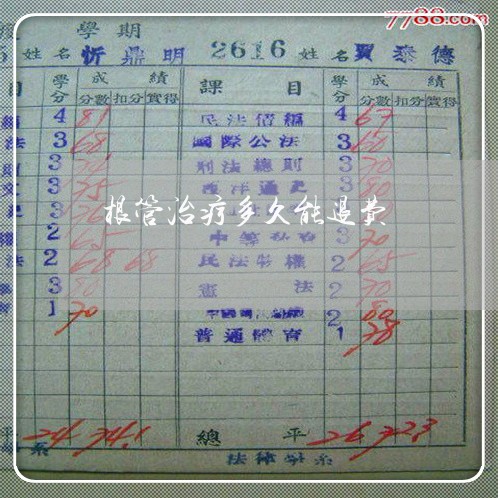 7788.com
學期
姓名 忻鼎明 2616 姓名 賈泰德
目 學分 成績 課目 學分 成績
分數 扣分 實得 分數 扣分 實得
4 81 民法債編 4 67
法 3 68 國際公法 3 60
3 刑法總則 3 70
3 75 西洋通史 3 80
根管治疗多久能退费
2 65 3 70
法 2 68 68 民法物權 2 65
3 80 憲法 2 70
育 1 70 2 80
普通體育 1 78
平 24 74.1 總平 26 72.3
系 法律學系